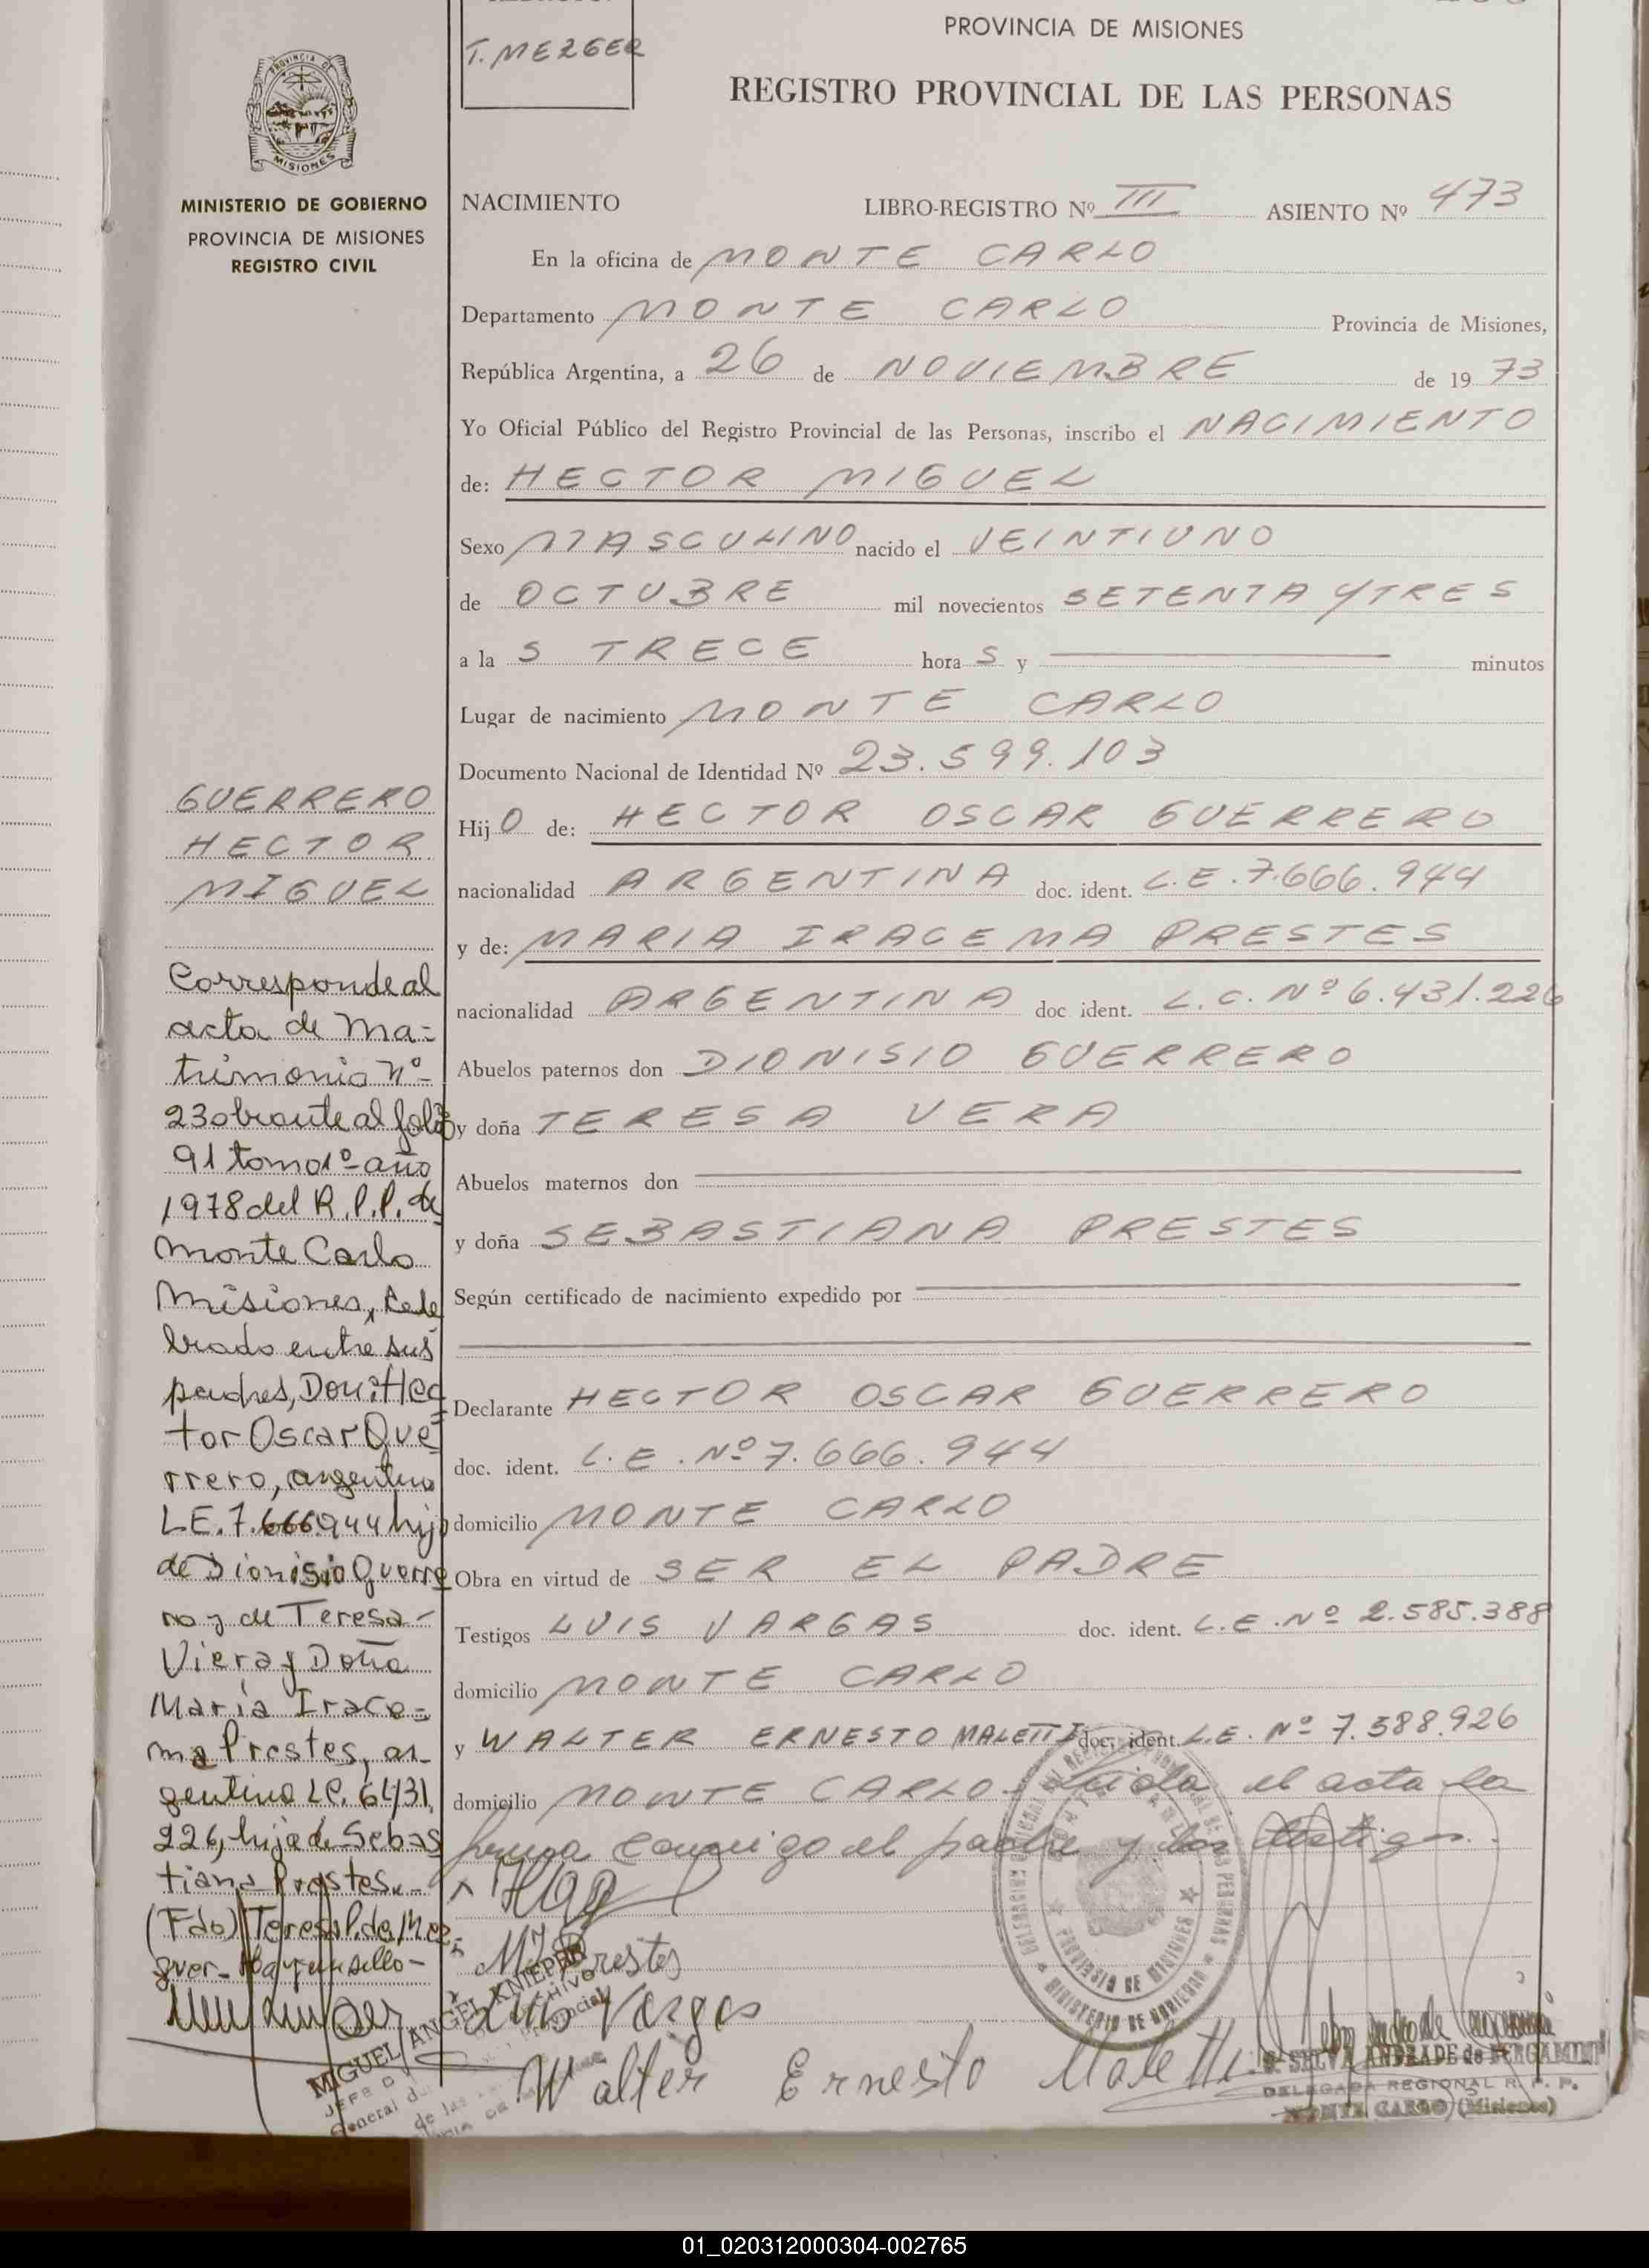 T. MEZGER
PROVINCIA DE MISIONES
REGISTRO PROVINCIAL DE LAS PERSONAS
PROVINCIA DE
MISIONES
MINISTERIO DE GOBIERNO
PROVINCIA DE MISIONES
REGISTRO CIVIL
NACIMIENTO LIBRO-REGISTRO Nº III ASIENTO Nº 473
En la oficina de MONTE CARLO
Departamento MONTE CARLO Provincia de Misiones,
República Argentina, a 26 de NOVIEMBRE de 19 73
Yo Oficial Público del Registro Provincial de las Personas, inscribo el NACIMIENTO
de: HECTOR MIGUEL
Sexo MASCULINO nacido el VEINTIUNO
de OCTUBRE mil novecientos SETENTA Y TRES
a la S TRECE hora S y minutos
Lugar de nacimiento MONTE CARLO
Documento Nacional de Identidad Nº 23.599.103
Hij O de: HECTOR OSCAR GUERRERO
nacionalidad ARGENTINA doc. ident. L.E. 7.666.944
y de: MARIA IRACEMA PRESTES
nacionalidad ARGENTINA doc ident. L.C. Nº 6.431.226
Abuelos paternos don DIONISIO GUERRERO
y doña TERESA VERA
Abuelos maternos don
y doña SEBASTIANA PRESTES
Según certificado de nacimiento expedido por
Declarante HECTOR OSCAR GUERRERO
doc. ident. L.E. Nº 7.666.944
domicilio MONTE CARLO
Obra en virtud de SER EL PADRE
Testigos LUIS VARGAS doc. ident. L.E. Nº 2.585.388
domicilio MONTE CARLO
y WALTER ERNESTO MALETTI doc. ident. L.E. Nº 7.588.926
domicilio MONTE CARLO. Leida el acta la
firma conmigo el padre y los testigos.
GUERRERO
HECTOR
MIGUEL
Corresponde al
acta de Ma=
trimonio Nº
23 obrante al folio
91 tomo 1º año
1978 del R.P.P. de
Monte Carlo
Misiones, cele
brado entre sus
padres, Don: Hec
tor Oscar Gue=
rrero, argentino
LE. 7.666944 hijo
de Dionisio Guerre
ro y de Teresa
Viera y Doña
María Irace=
ma Prestes, ar_
gentina LC. 6431.
226, hija de Sebas
tiana Prestes.-
(Fdo) Teresa P. de Mez=
guer- Hay un sello-
M I Prestes
Luis Vargas
Walter Ernesto Maletti
MIGUEL ANGEL KNIEPER
PROVINCIA DE MISIONES
MINISTERIO DE GOBIERNO
S. SELVA ANDRADE de BERGAMINI
DELEGADA REGIONAL R. P. P.
MONTE CARLO (Misiones)
01_020312000304-002765